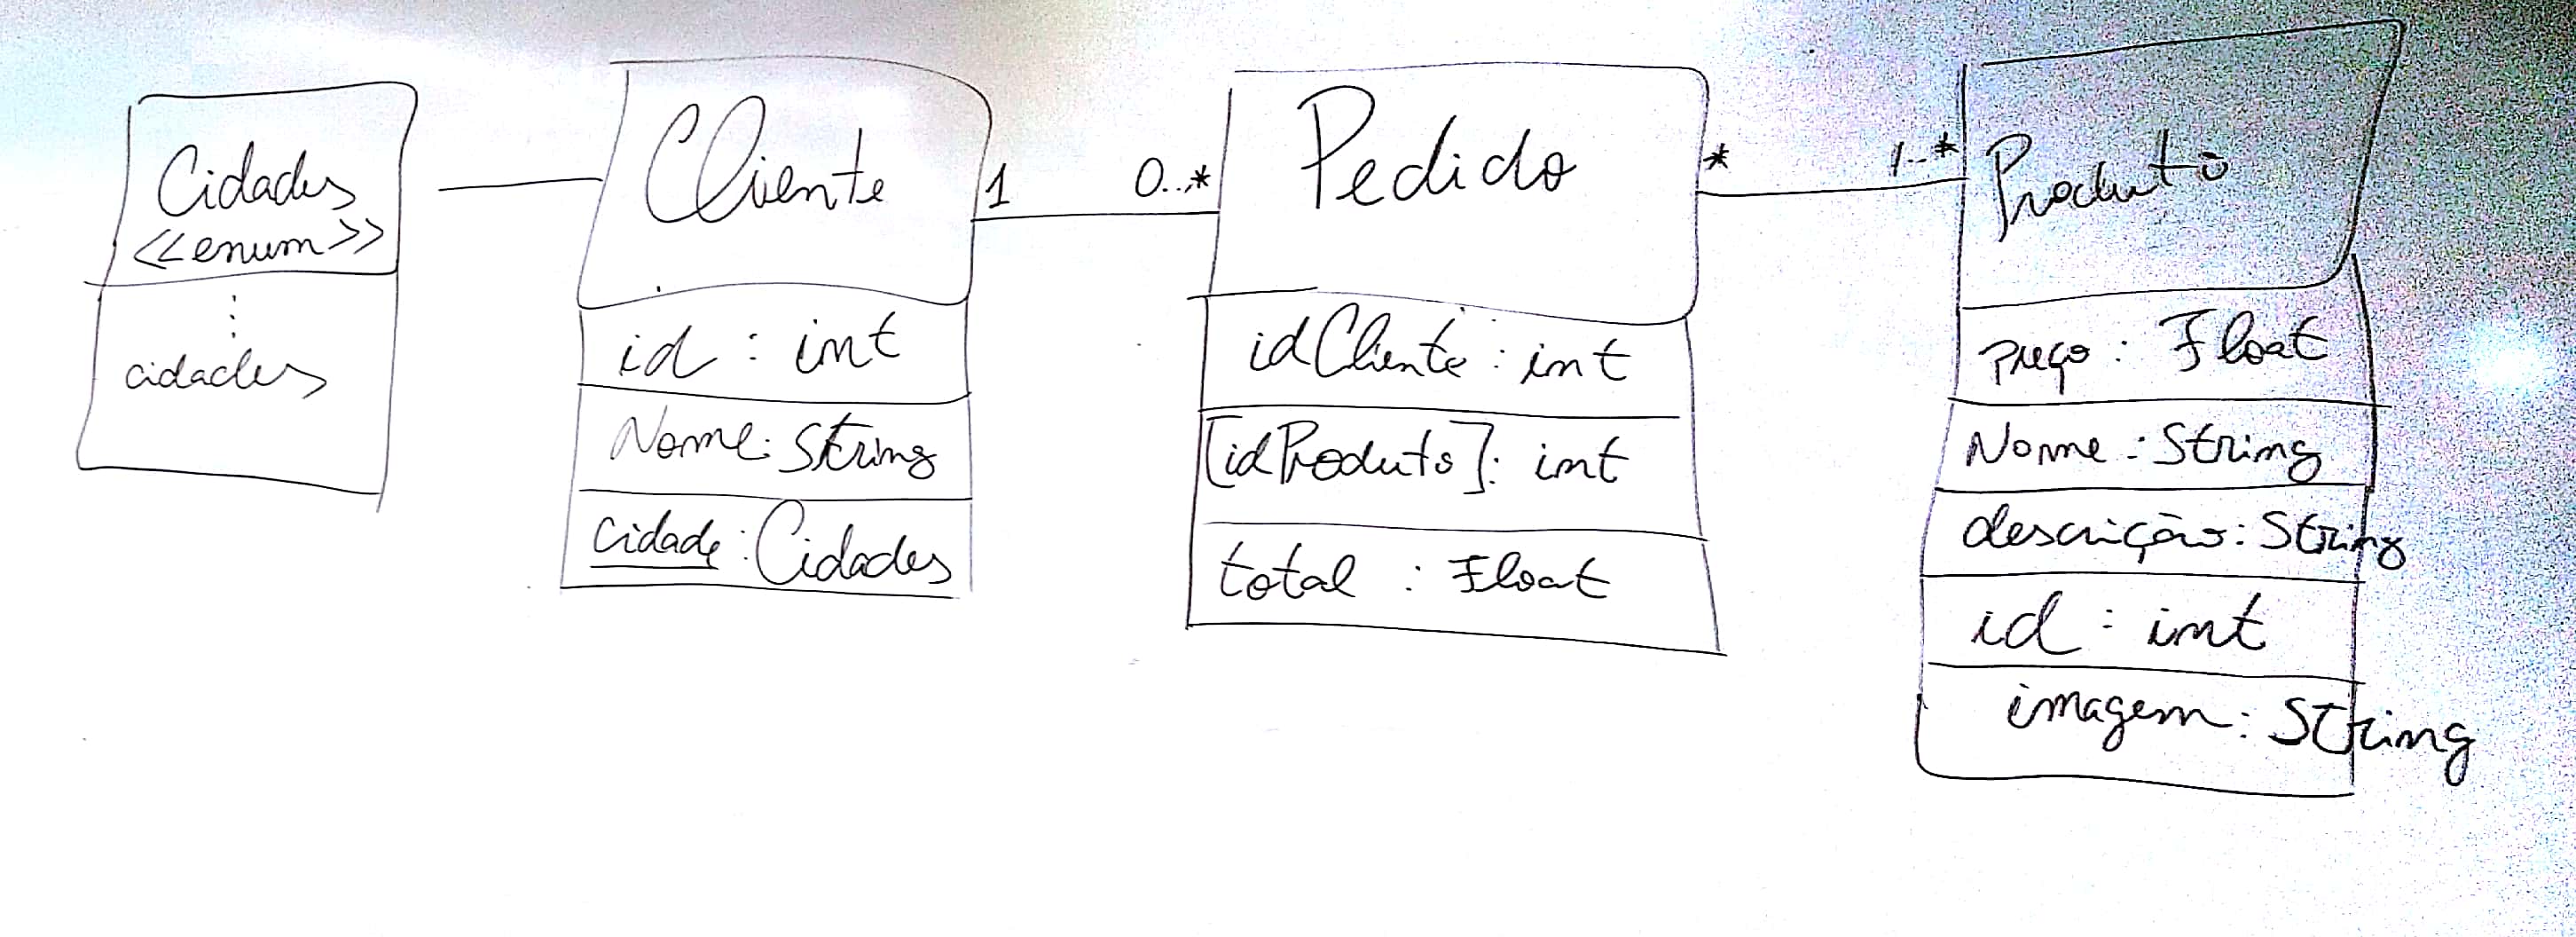 Cidades
<<enum>>
⋮
cidades
Cliente
id : int
Nome : String
cidade : Cidades
1
0..*
Pedido
idCliente : int
[idProduto] : int
total : Float
*
1..*
Produto
preço : Float
Nome : String
descrição : String
id : int
imagem : String